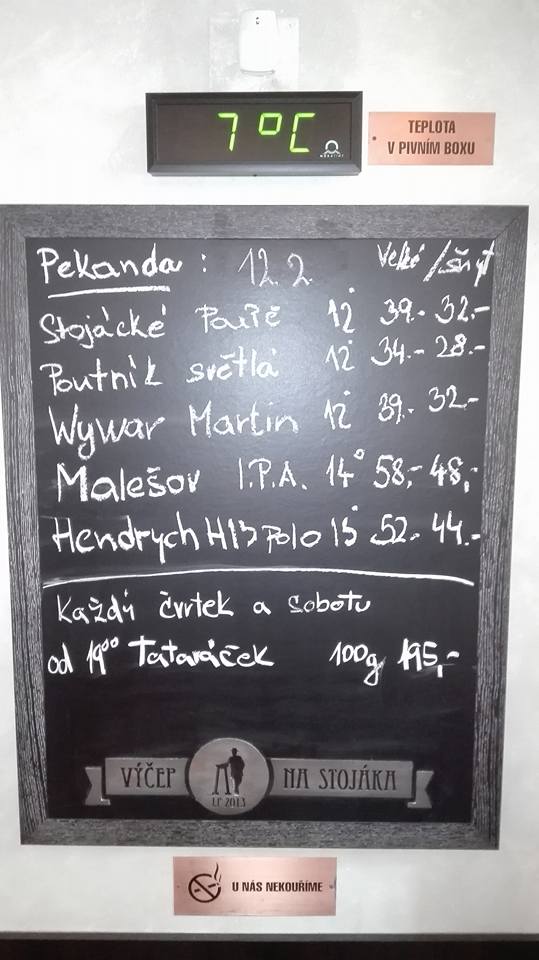 7°C
TEPLOTA
V PIVNÍM BOXU
Pekanda : 12.2. Velké / šnyt
Stojácké 12° 39.- 32.-
Poutník světlá 12° 34.- 28.-
Wywar Martin 12° 39.- 32.-
Malešov I.P.A. 14° 58,- 48,-
Hendrych H13 Polo 13° 52.- 44.-
Každý čvrtek a sobotu
od 19⁰⁰ Tataráček 100g 195,-
VÝČEP NA STOJÁKA
LP 2013
U NÁS NEKOUŘÍME